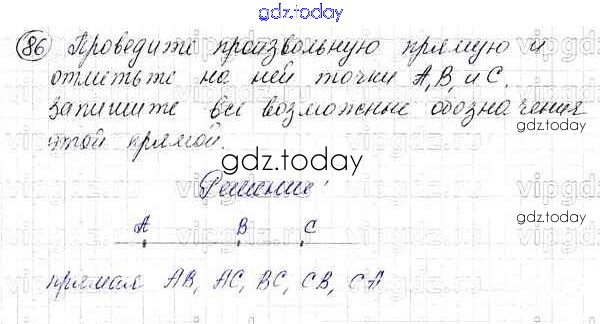 gdz.today
86 Проведите произвольную прямую и
отметьте на ней точки А, В, и С.
Запишите все возможные обозначения
этой прямой.
gdz.today
Решение:
gdz.today
А В С
прямая АВ, АС, ВС, СВ, СА